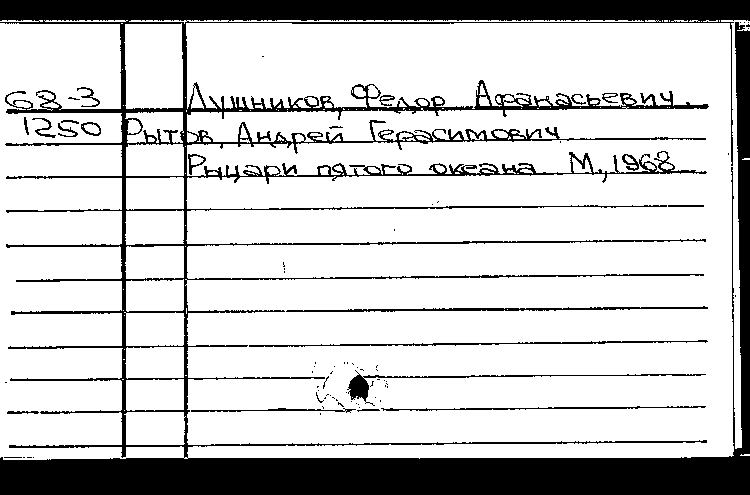 68-3 Лушников, Федор Афанасьевич.
1250 Рытов, Андрей Герасимович
Рыцари пятого океана М., 1968